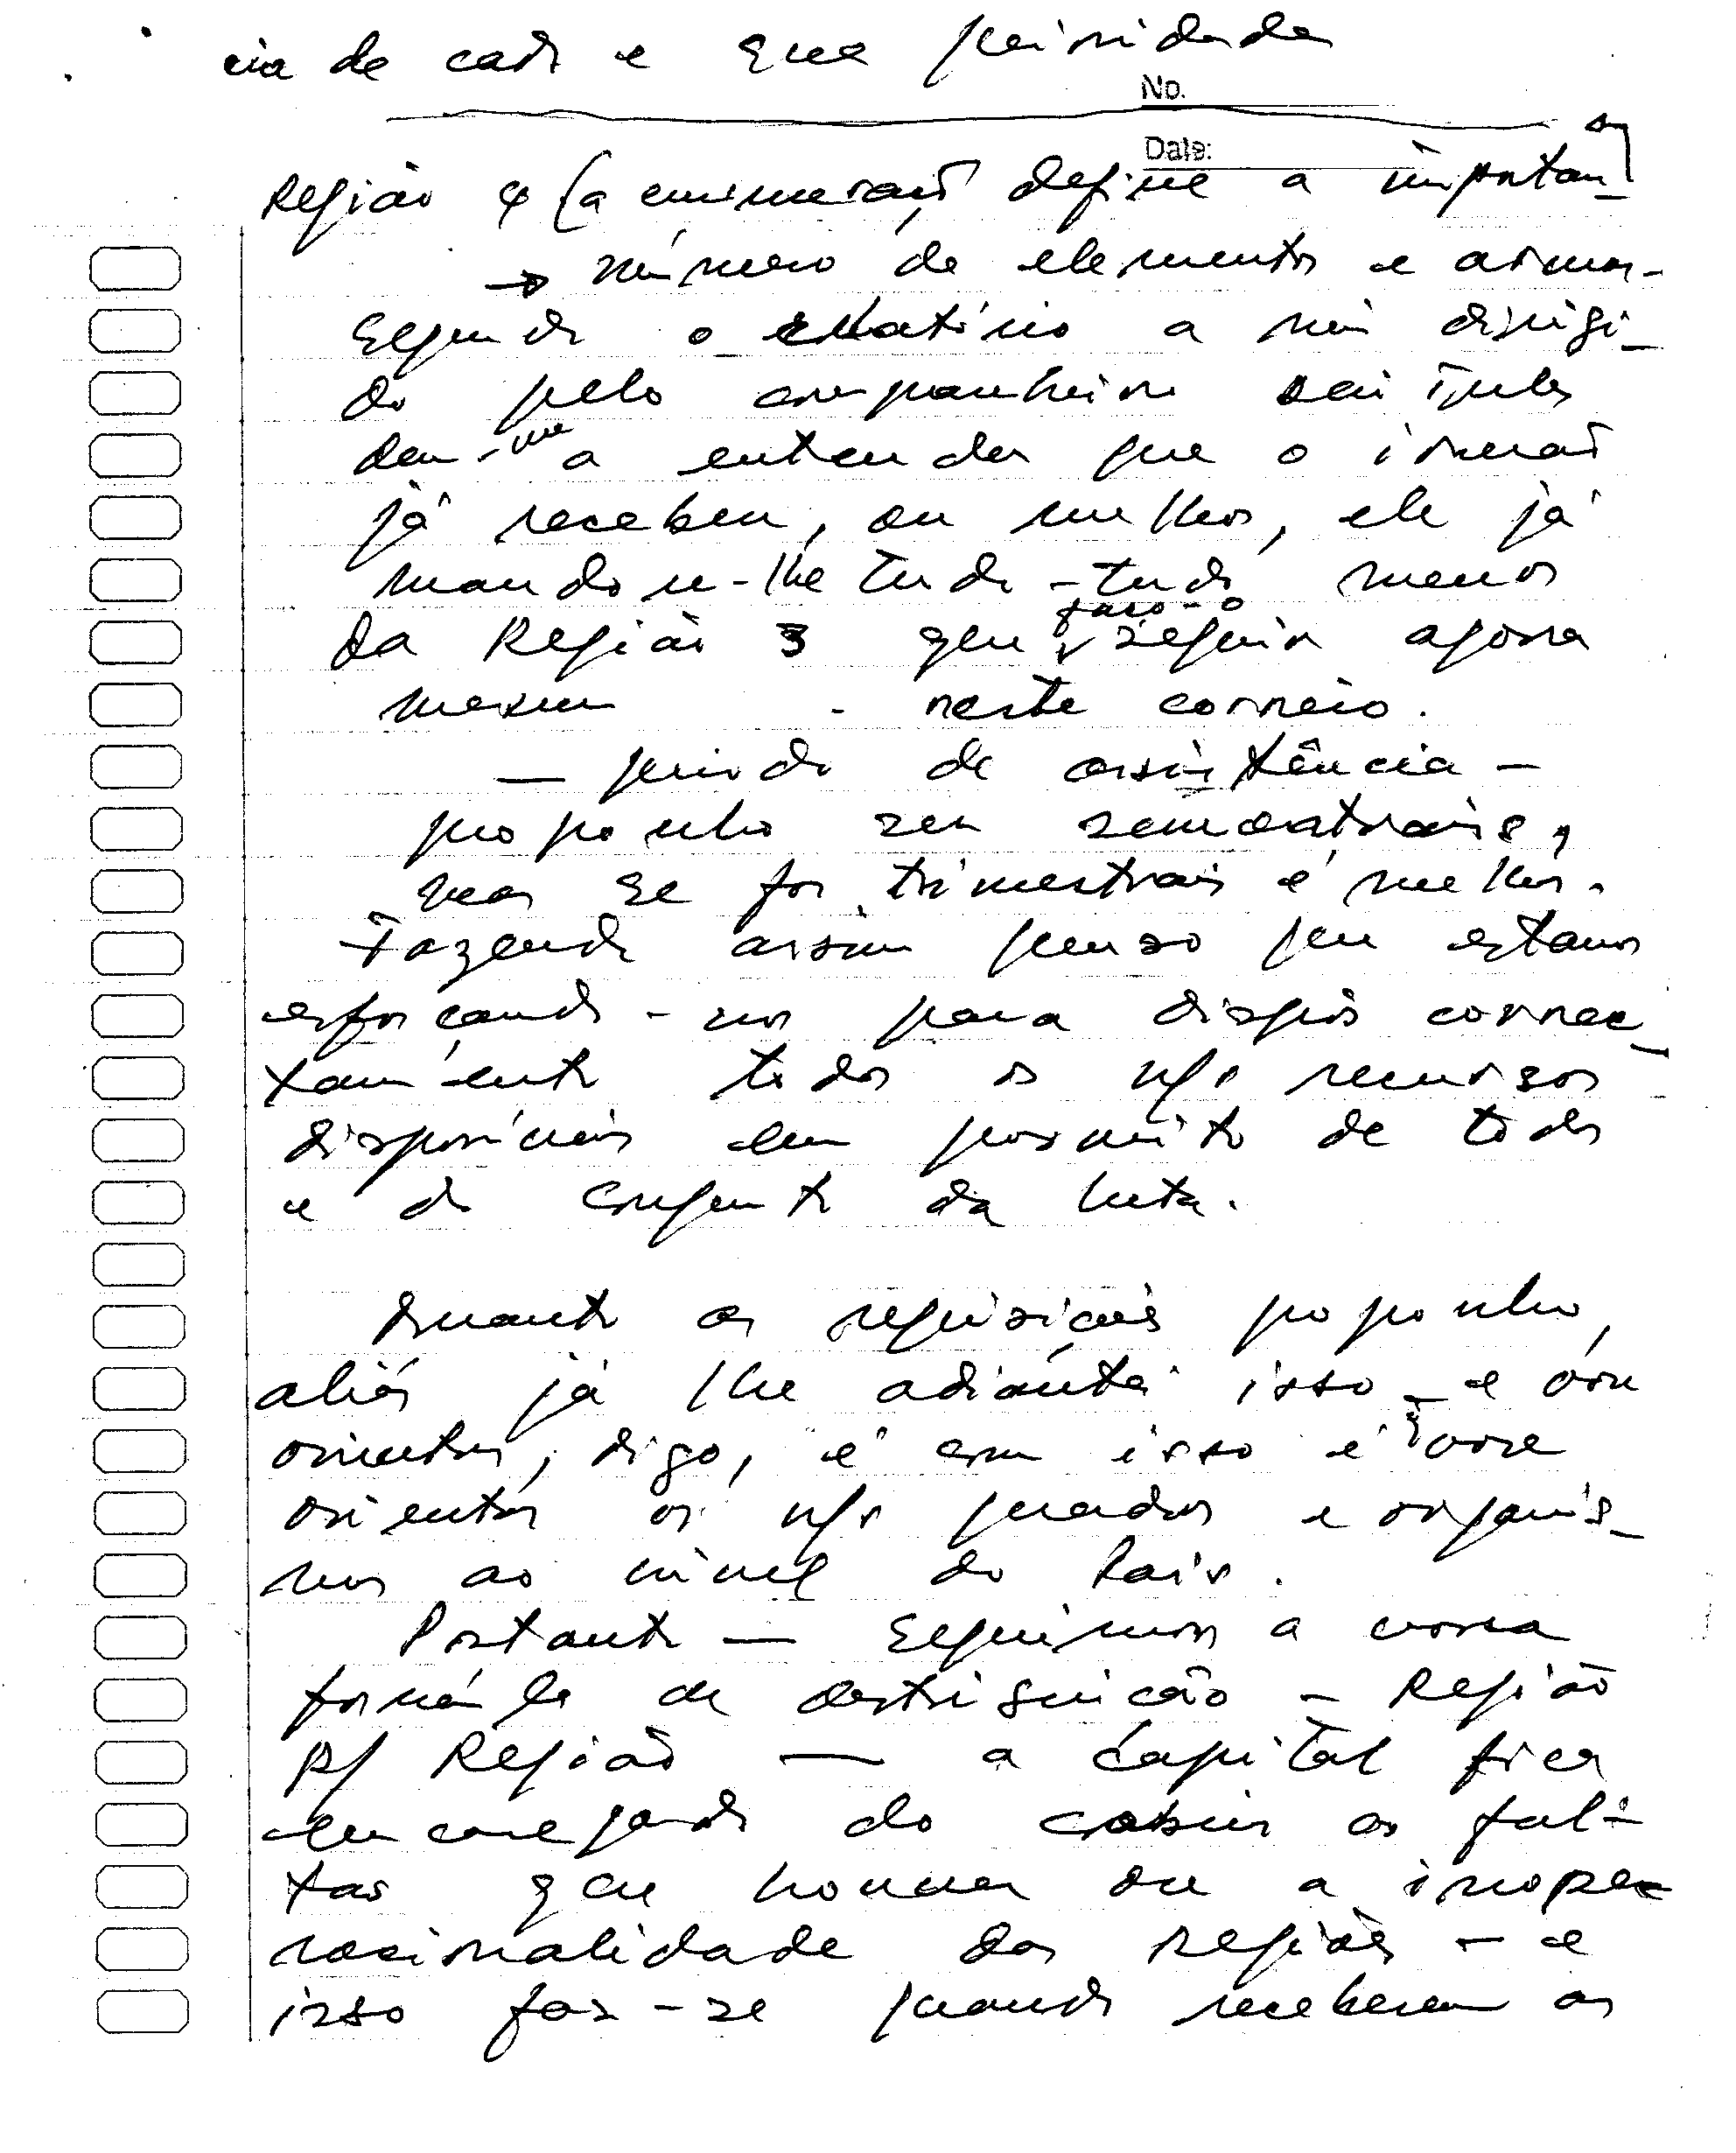 cia de cada e sua prioridade
No.
Date:
Região 4 (a enumeração define a importan-
→ número de elementos e armas-
Segundo o relatório a mim dirigi-
do pelo companheiro
deu-me a entender que o irmão
já recebeu, ou melhor, ele já
mandou-lhe tudo - tudo menos
da Região 3 que faço-o seguir agora
mesmo - neste correio.
— período de assistência -
proponho ser semestrais,
mas se for trimestrais é melhor.
Fazendo assim penso que estamos
esforçando-nos para dispôr correc-
tamente todos os n/s recursos
disponíveis em proveito de todos
e do conjunto da luta.
Quanto as requisições proponho,
aliás já lhe adiantei isso - e
orientar, digo, é com isso é
orientar os n/s quadros e organis-
mos ao nível do País.
Portanto — Seguimos a vossa
fórmula de distribuição - Região
p/ Região — a capital fica
encarregando do cobrir as fal-
tas que houver ou a inope-
racionalidade das regiões - e
isso faz-se quando receberem as